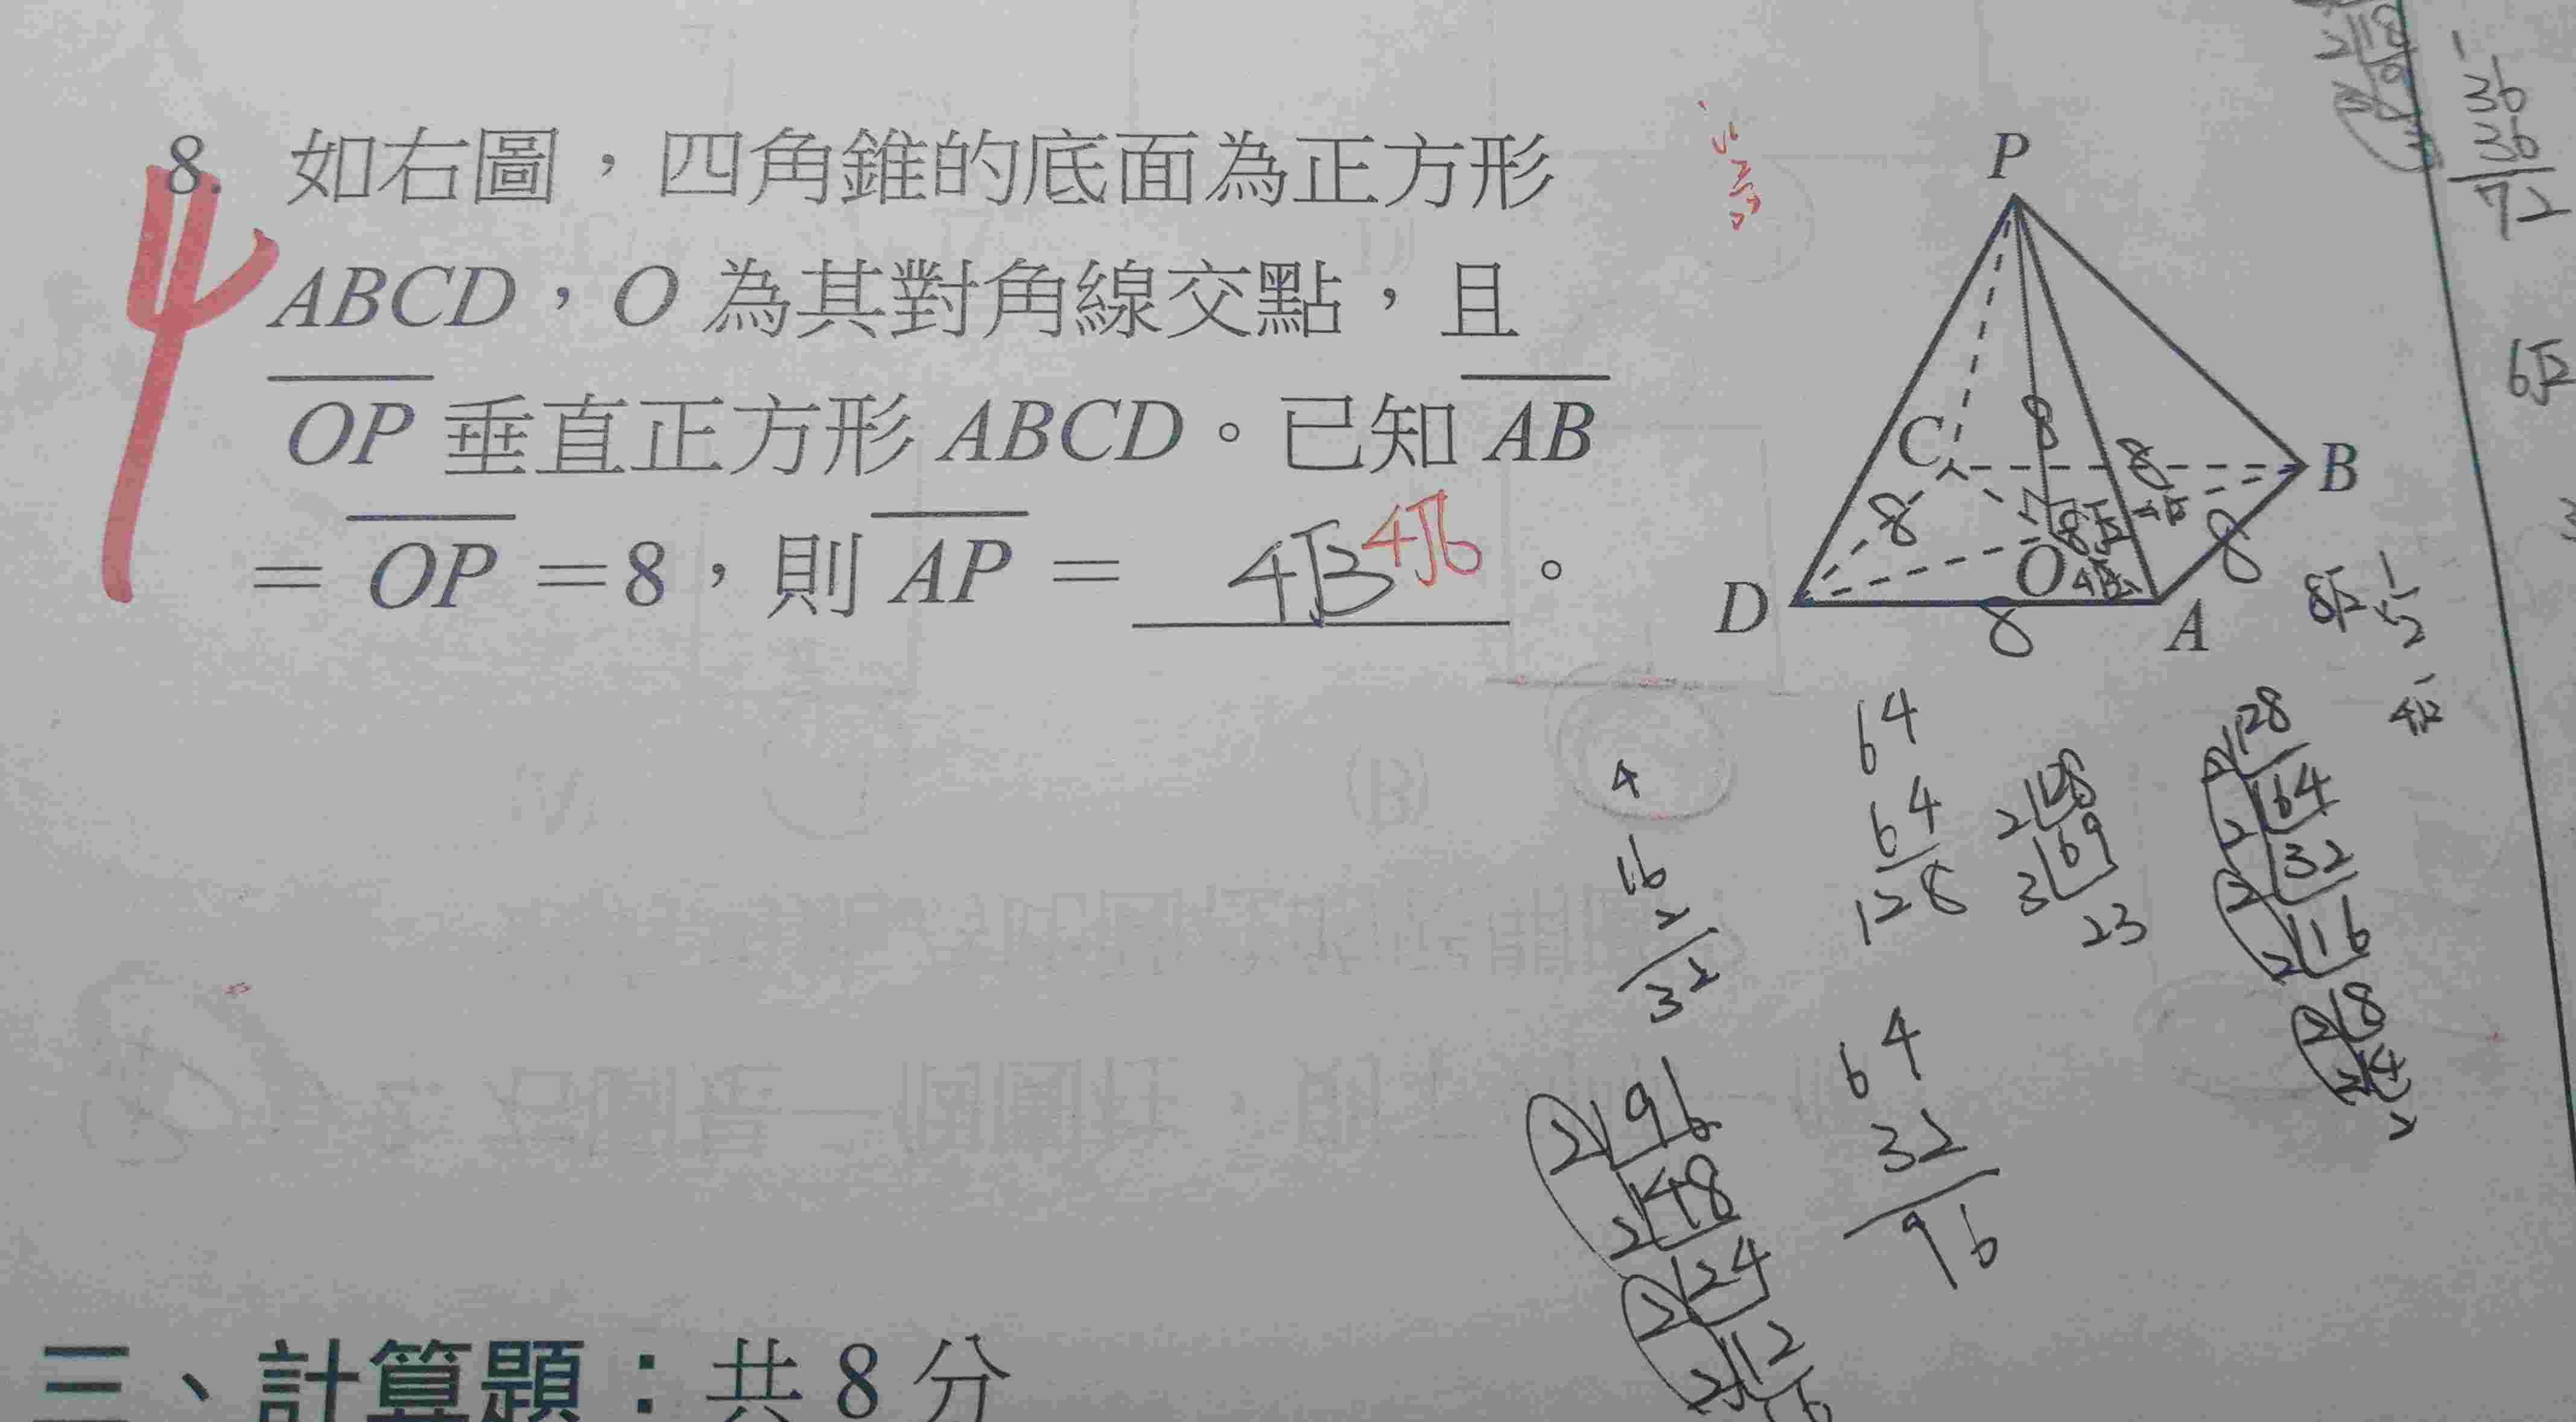 8. 如右圖，四角錐的底面為正方形
ABCD，O 為其對角線交點，且
OP 垂直正方形 ABCD。已知 AB
= OP =8，則 AP = 4√3 4√6 。
P
C
8
8
B
8
8√2
4√2
O
4√2
8
D
8
A
2 18
9
36
36
72
6√2
8√2 1/2
4√2
4
16
2
32
64
64
128
2 138
3 69
23
2 128
2 64
2 32
2 16
2 8
2 4
2
64
32
96
2 96
2 48
2 24
2 12
6
三、計算題：共 8 分